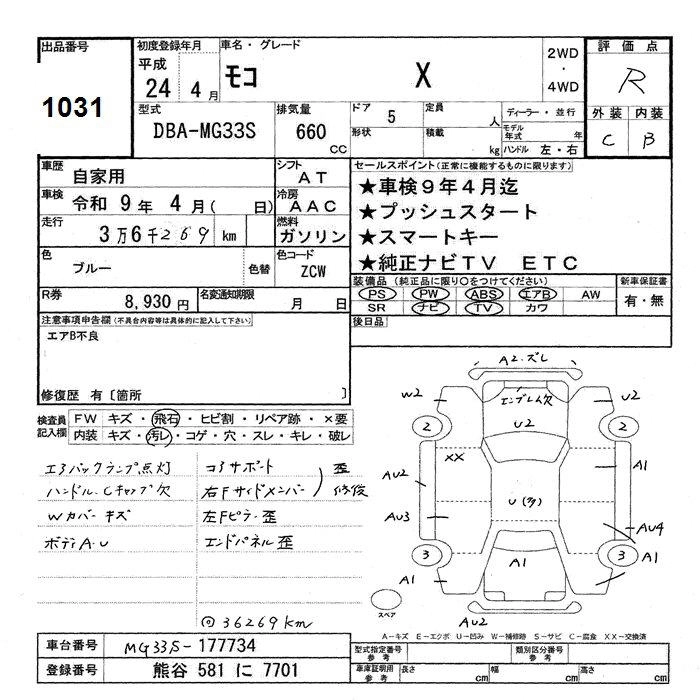 出品番号
1031
初度登録年月
平成
24 年 4 月
車名・グレード
モコ X
2WD
・
4WD
評価点
R
外装 内装
C B
型式
DBA-MG33S
排気量
660 CC
ドア 5
形状
定員 人
積載 kg
ディーラー・並行
モデル年式 年
ハンドル 左・右
車歴
自家用
シフト
AT
車検 令和 9 年 4 月( 日)
冷房
AAC
走行
3 万 6 千 269 km
燃料
ガソリン
色
ブルー
色替
色コード
ZCW
R券
8,930 円
名変通知期限
月 日
セールスポイント(正常に機能するものに限ります)
★車検9年4月迄
★プッシュスタート
★スマートキー
★純正ナビTV ETC
装備品 (純正品に限り○をつけてください)
PS PW ABS エアB AW
SR ナビ TV カワ
新車保証書
有・無
後日品
注意事項申告欄(不具合内容等は具体的に記入して下さい)
エアB不良
修復歴 有〔箇所 〕
検査員
記入欄
FW キズ・飛石・ヒビ割・リペア跡・×要
内装 キズ・汚レ・コゲ・穴・スレ・キレ・破レ
エアバックランプ点灯
ハンドル、Cキャップ欠
Wカバーキズ
ボディA・U
コアサポート 歪
右Fサイドメンバー 修復
左Fピラー歪
エンドパネル歪
◎36269km
A2・ズレ
W2
エンブレム欠
U2
U2
2
2
XX
A1
AU2
U(多)
AU3
AU4
3
A1
3
A1
A1
AU2
スペア
A-キズ E-エクボ U-凹み W-補修跡 S-サビ C-腐食 XX-交換済
車台番号
MG33S-177734
登録番号
熊谷 581 に 7701
型式指定番号
参考
類別区分番号
参考
車庫証明用
参考
長さ cm
幅 cm
高さ cm